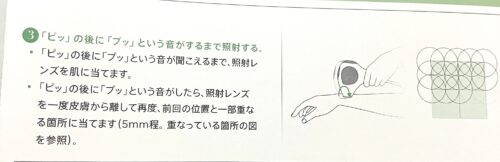 3 「ピッ」の後に「プッ」という音がするまで照射する。
• 「ピッ」の後に「プッ」という音が聞こえるまで、照射レ
ンズを肌に当てます。
• 「ピッ」の後に「プッ」という音がしたら、照射レンズ
を一度皮膚から離して再度、前回の位置と一部重な
る箇所に当てます(5mm程。重なっている箇所の図
を参照)。